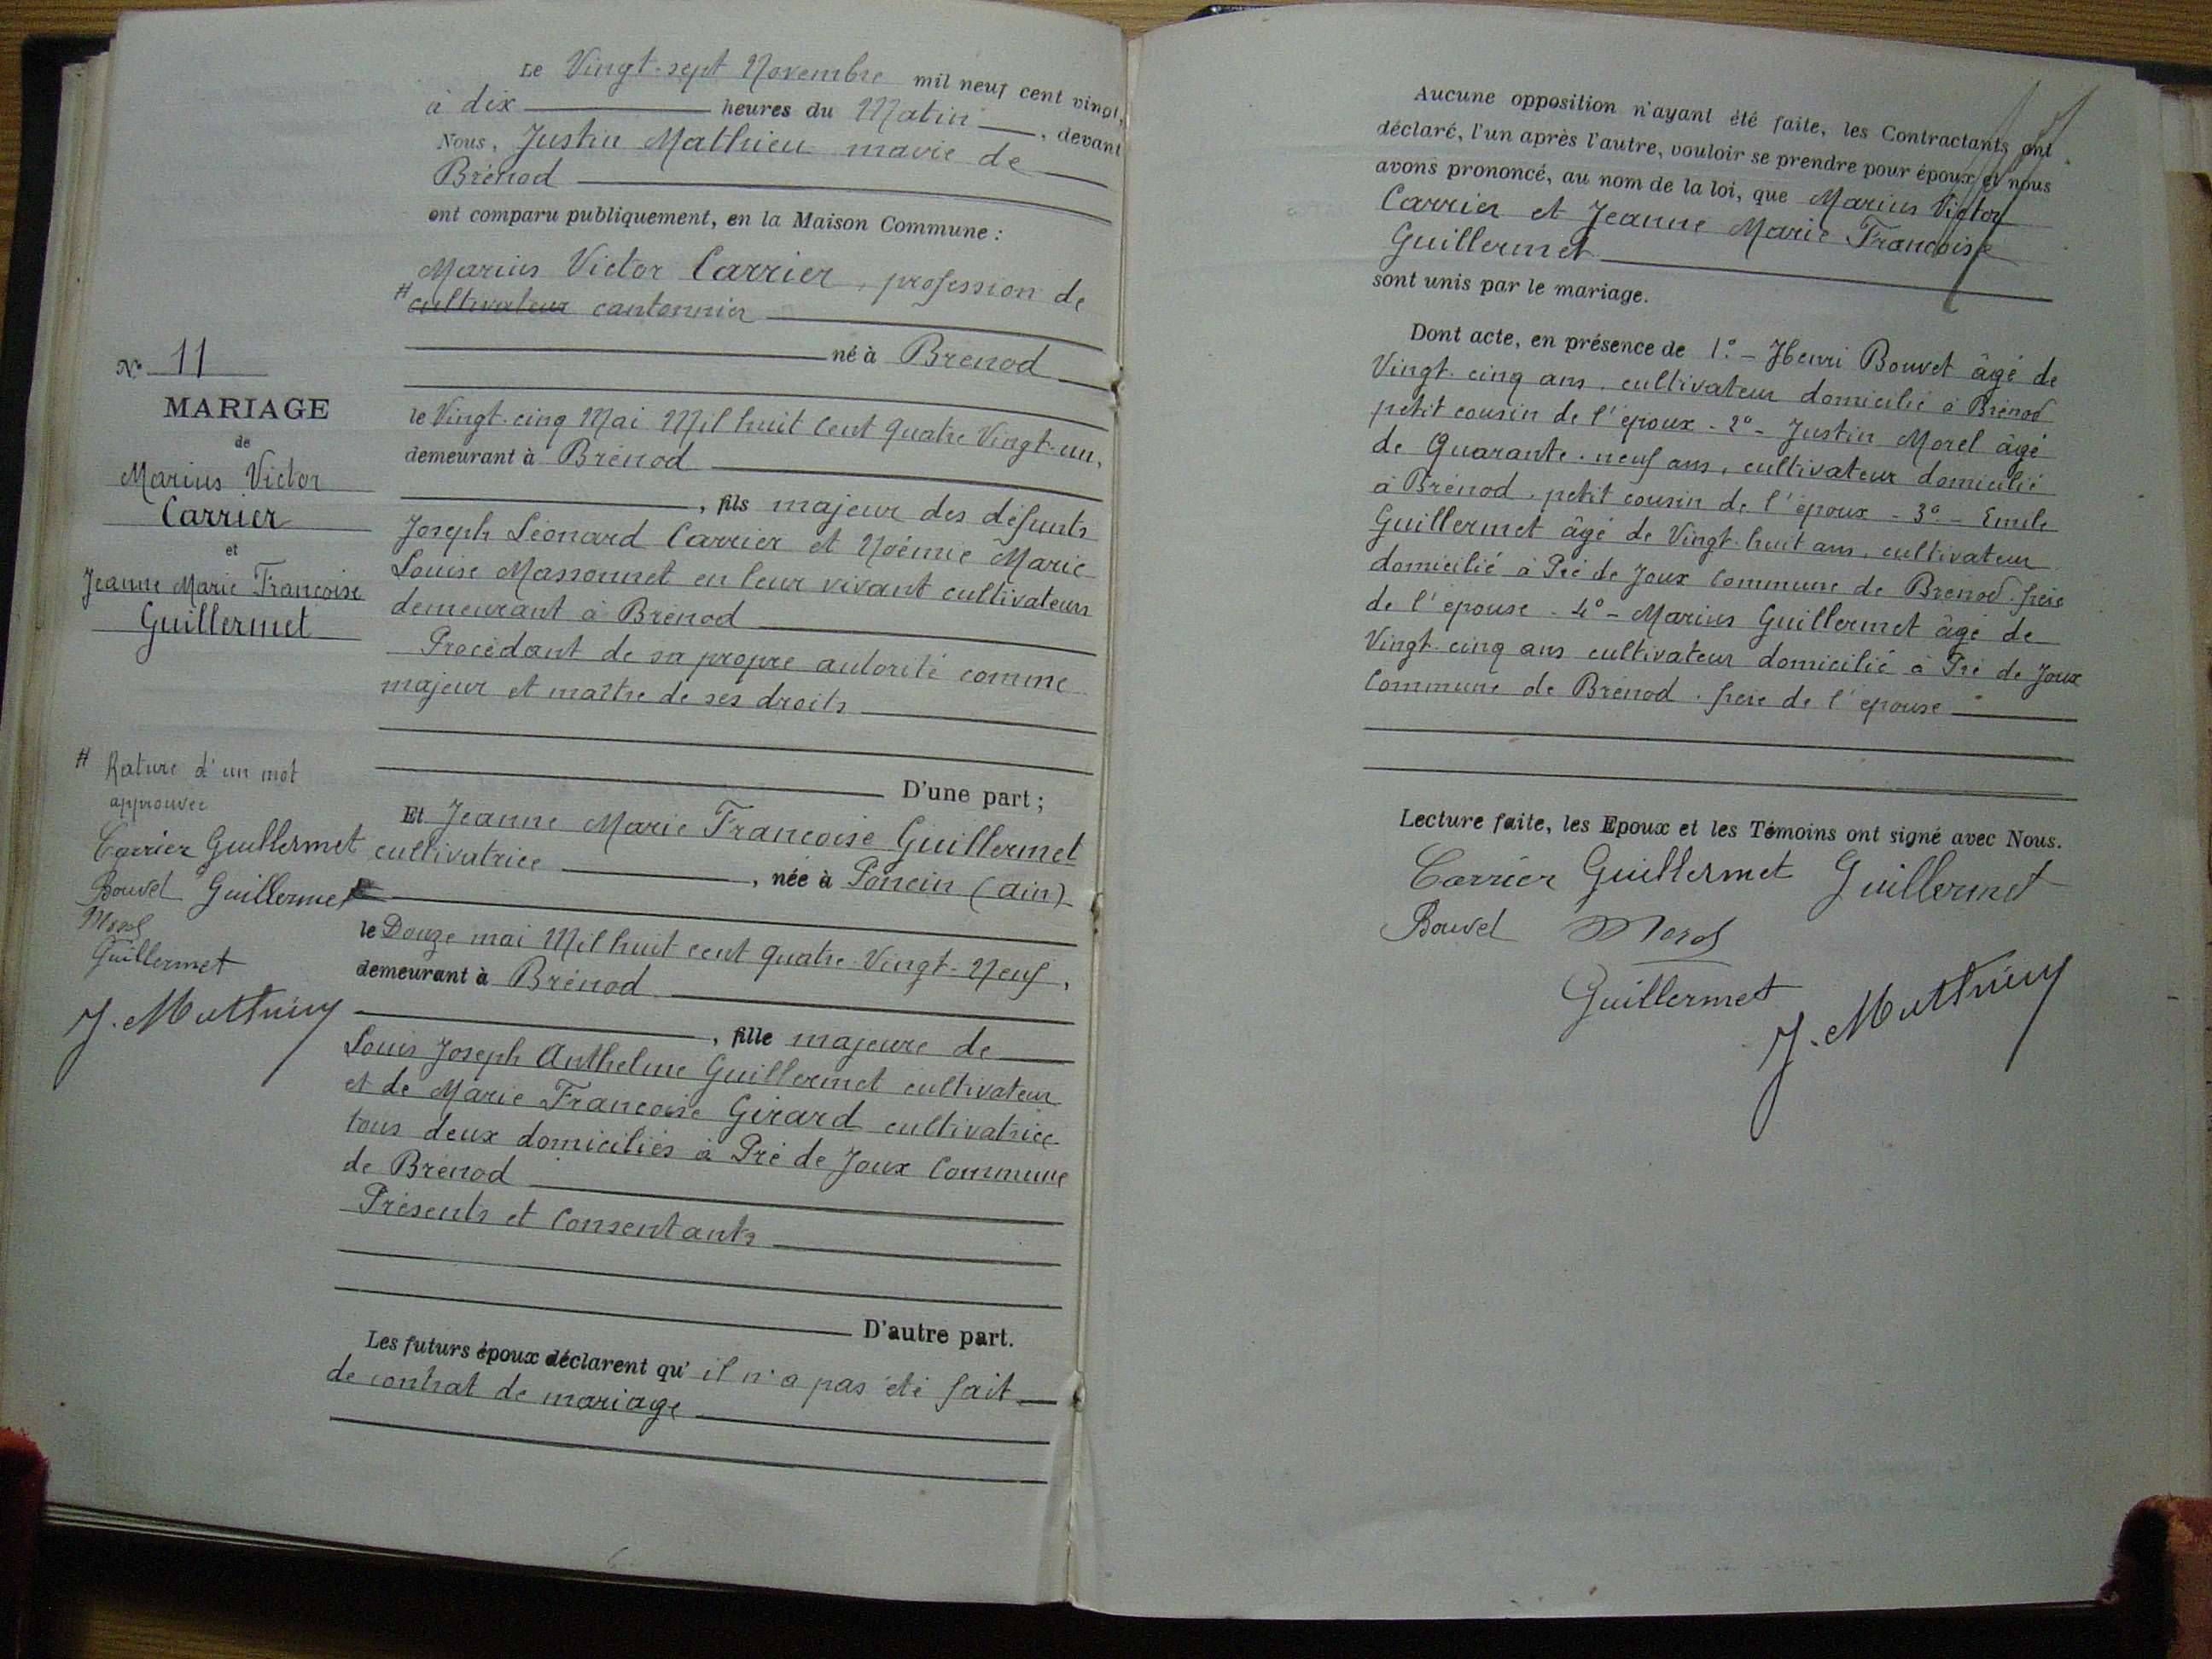 Le Vingt-sept Novembre mil neuf cent vingt,
à dix heures du Matin, devant
Nous, Justin Mathieu maire de
Brénod
ont comparu publiquement, en la Maison Commune :
Marius Victor Carrier, profession de
# cultivateur cantonnier
né à Brénod
le Vingt-cinq Mai Mil huit Cent quatre Vingt-un,
demeurant à Brénod
, fils majeur des défunts
Joseph Léonard Carrier et Noémie Marie
Louise Massonnet en leur vivant cultivateurs
demeurant à Brénod
Procédant de sa propre autorité comme
majeur et maître de ses droits
D'une part ;
Et Jeanne Marie Francoise Guillermet
cultivatrice, née à Poncin (Ain)
le Douze mai Mil huit cent quatre-Vingt-Neuf,
demeurant à Brénod
, fille majeure de
Louis Joseph Anthelme Guillermet cultivateur
et de Marie Francoise Girard cultivatrice
tous deux domiciliés à Pré de Joux Commune
de Brénod
Présents et Consentants
D'autre part.
Les futurs époux déclarent qu'il n'a pas été fait
de contrat de mariage
N° 11
MARIAGE
de
Marius Victor
Carrier
et
Jeanne Marie Francoise
Guillermet
# Rature d'un mot
approuvée
Carrier Guillermet
Bouvet Guillermet
Morel
Guillermet
J. Mathieu
Aucune opposition n'ayant été faite, les Contractants ont
déclaré, l'un après l'autre, vouloir se prendre pour époux et nous
avons prononcé, au nom de la loi, que Marius Victor
Carrier et Jeanne Marie Francoise
Guillermet
sont unis par le mariage.
Dont acte, en présence de 1.° - Henri Bouvet âgé de
Vingt-cinq ans, cultivateur domicilié à Brénod
petit cousin de l'époux - 2° - Justin Morel âgé
de Quarante-neuf ans, cultivateur domicilié
à Brénod, petit cousin de l'époux - 3° - Emile
Guillermet âgé de Vingt-huit ans, cultivateur
domicilié à Pré de Joux Commune de Brénod. frère
de l'épouse - 4° - Marius Guillermet âgé de
Vingt-cinq ans cultivateur domicilié à Pré de Joux
Commune de Brénod. frère de l'épouse
Lecture faite, les Epoux et les Témoins ont signé avec Nous.
Carrier Guillermet Guillermet
Bouvet Morel
Guillermet
J. Mathieu